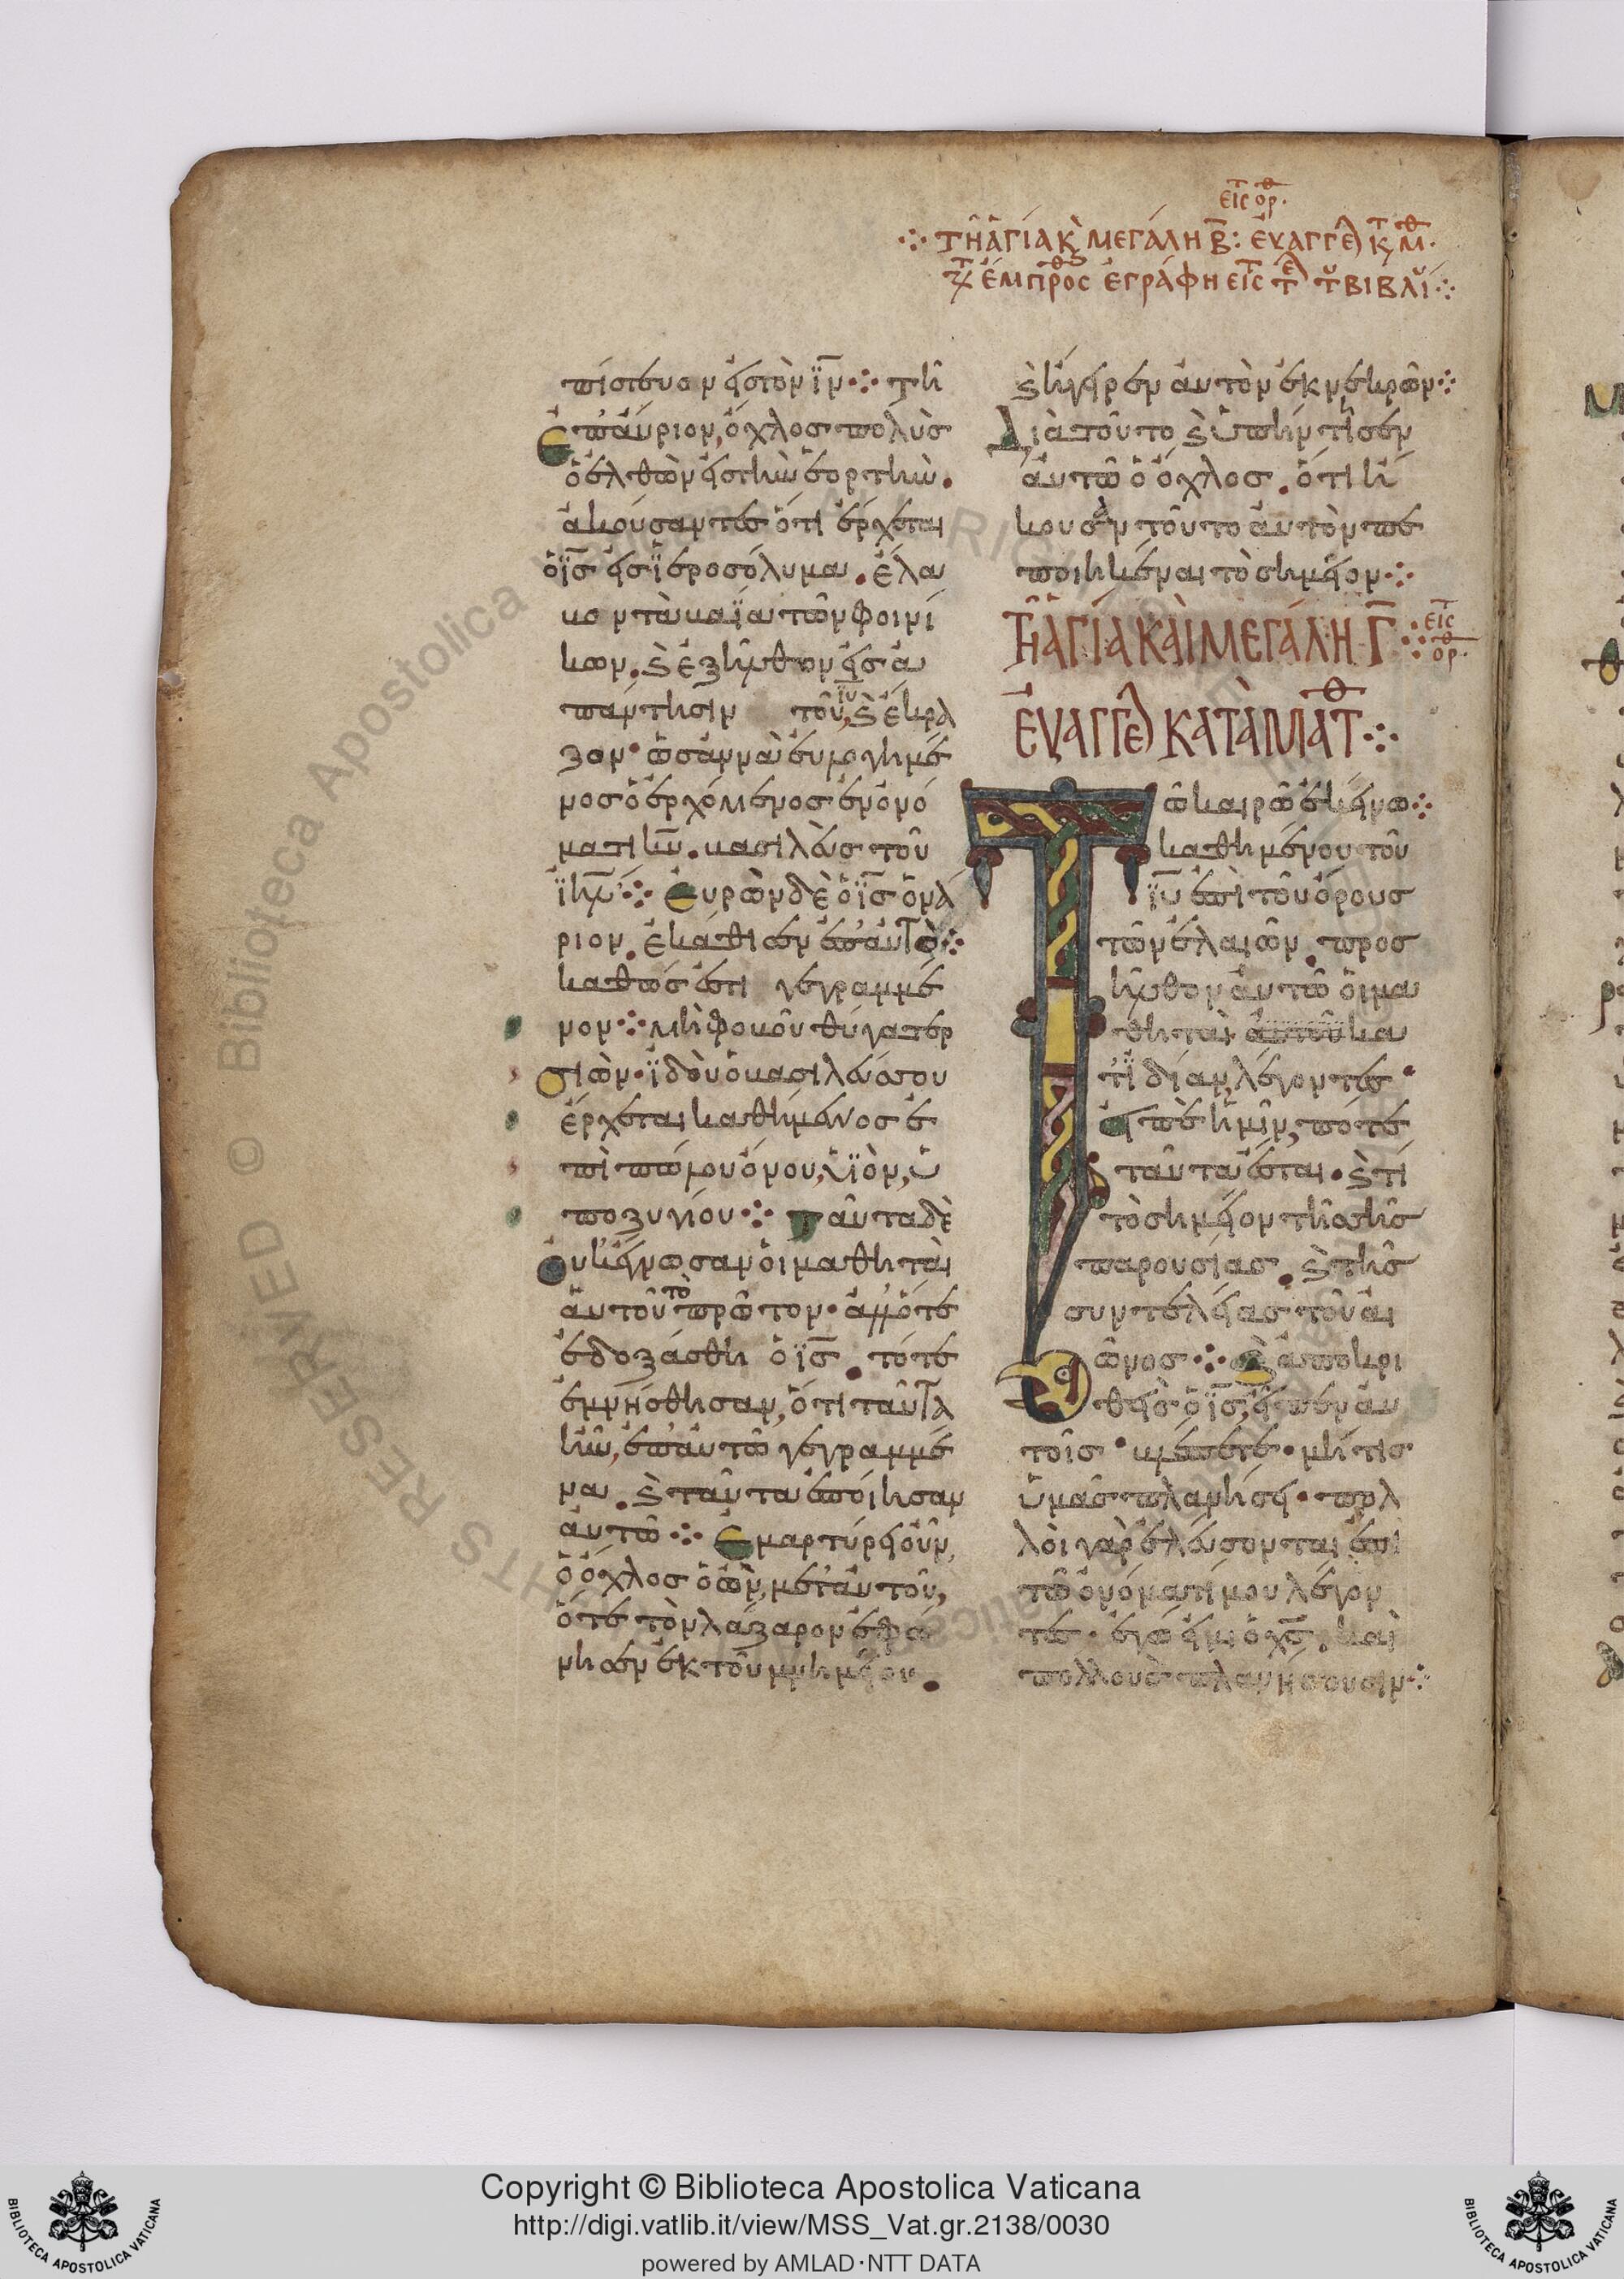 εἰς ὄρθ.
τῇ ἁγία κ μεγάλη β: ἐυαγγελ κτ Μθ.
ζτ ἔμπροσθ ἐγράφη εἰς τ τελ τοῦ βιβλίου
πίστευον εἰς τὸν ἰν· τῆ
ἐπἄυριον, ὄχλος πολὺς
ὁ ἐλθὼν εἰς τὴν ἑορτὴν.
ἀκούσαντες ὅτι ἔρχεται
ὁ ις εἰς ἱεροσόλυμα. ἔλα
βον τὰ βαΐα τῶν φοινί
κων. κ ἐξῆλθον εἰς ἀ
πάντησιν τοῦ ιυ, κ ἔκρα
ζον· ὡσαννὰ ἐυλογημέ
νος ὁ ἐρχόμενος ἐν ὀνό
ματι κυ. βασιλεὺς τοῦ
ιηλ· Ἑυρὼν δὲ ὁ ις ὀνά
ριον. ἐκάθισεν ἐπ' ἀυτὸ·
καθώς ἐστι γεγραμμέ
νον· μὴ φοβοῦ θύγατερ
σιών· ἰδοὺ ὁ βασιλεύς σου
ἔρχεται καθήμενος ἐ
πὶ πώλου ὄνου, ὑϊὸν, ὑ
ποζυγίου· ταῦτα δὲ
ὀυκ ἔγνωσαν ὁι μαθηταὶ
ἀυτοῦ τὸ πρῶτον· ἀλλ' ὅτε
ἐδοξάσθη ὁ ις. τότε
ἐμνήσθησαν, ὅτι ταῦτα
ἦν, ἐπ' ἀυτῶ γεγραμμέ
να. κ ταῦτα ἐποίησαν
ἀυτῶ· Ἐμαρτύρει οὖν,
ὁ ὄχλος ὁ ὢν, μετ' ἀυτοῦ,
ὅτε τὸν λάζαρον ἐφώ
νησεν ἐκ τοῦ μνημείου.
κ ἤγειρεν ἀυτὸν ἐκ νεκρῶν·
Διὰ τοῦτο κ ὑπήντησεν
ἀυτῶ ὁ ὄχλος. ὅτι ἤ
κουσαν τοῦτο ἀυτὸν πε
ποιηκέναι τὸ σημεῖον·
ΤΗ ἉΓΊΑ ΚΑῚ ΜΕΓΆΛΗ Γ· εἰς ὄρθ.
ἘΥΑΓΓΕΛ ΚΑΤᾺ ΜΑΤΘ·
Τῶ καιρῶ ἐκείνω·
καθημένου τοῦ
ιυ ἐπὶ τοῦ ὄρους
τῶν ἐλαιῶν. προσ
ῆλθον ἀυτῶ ὁι μα
θηταὶ ἀυτοῦ κα
τϊδίαν, λέγοντες·
εἰπὲ ἡμῖν, πότε
ταῦτα ἔσται. κ τί
τὸ σημεῖον τῆς σῆς
παρουσίας. κ τῆς
συντελείας τοῦ αἰ
ῶνος· κ ἀποκρι
θεὶς ὁ ις, εἶπεν ἀυ
τοῖς· βλέπετε· μή τις
ὑμᾶς πλανήσει· πολ
λοὶ γὰρ ἐλεύσονται ἐπὶ
τῶ ὀνόματί μου λέγον
τες· ἐγώ εἰμι ὁ χς. καὶ
πολλοὺς πλανήσουσιν·
Copyright © Biblioteca Apostolica Vaticana
http://digi.vatlib.it/view/MSS_Vat.gr.2138/0030
powered by AMLAD·NTT DATA